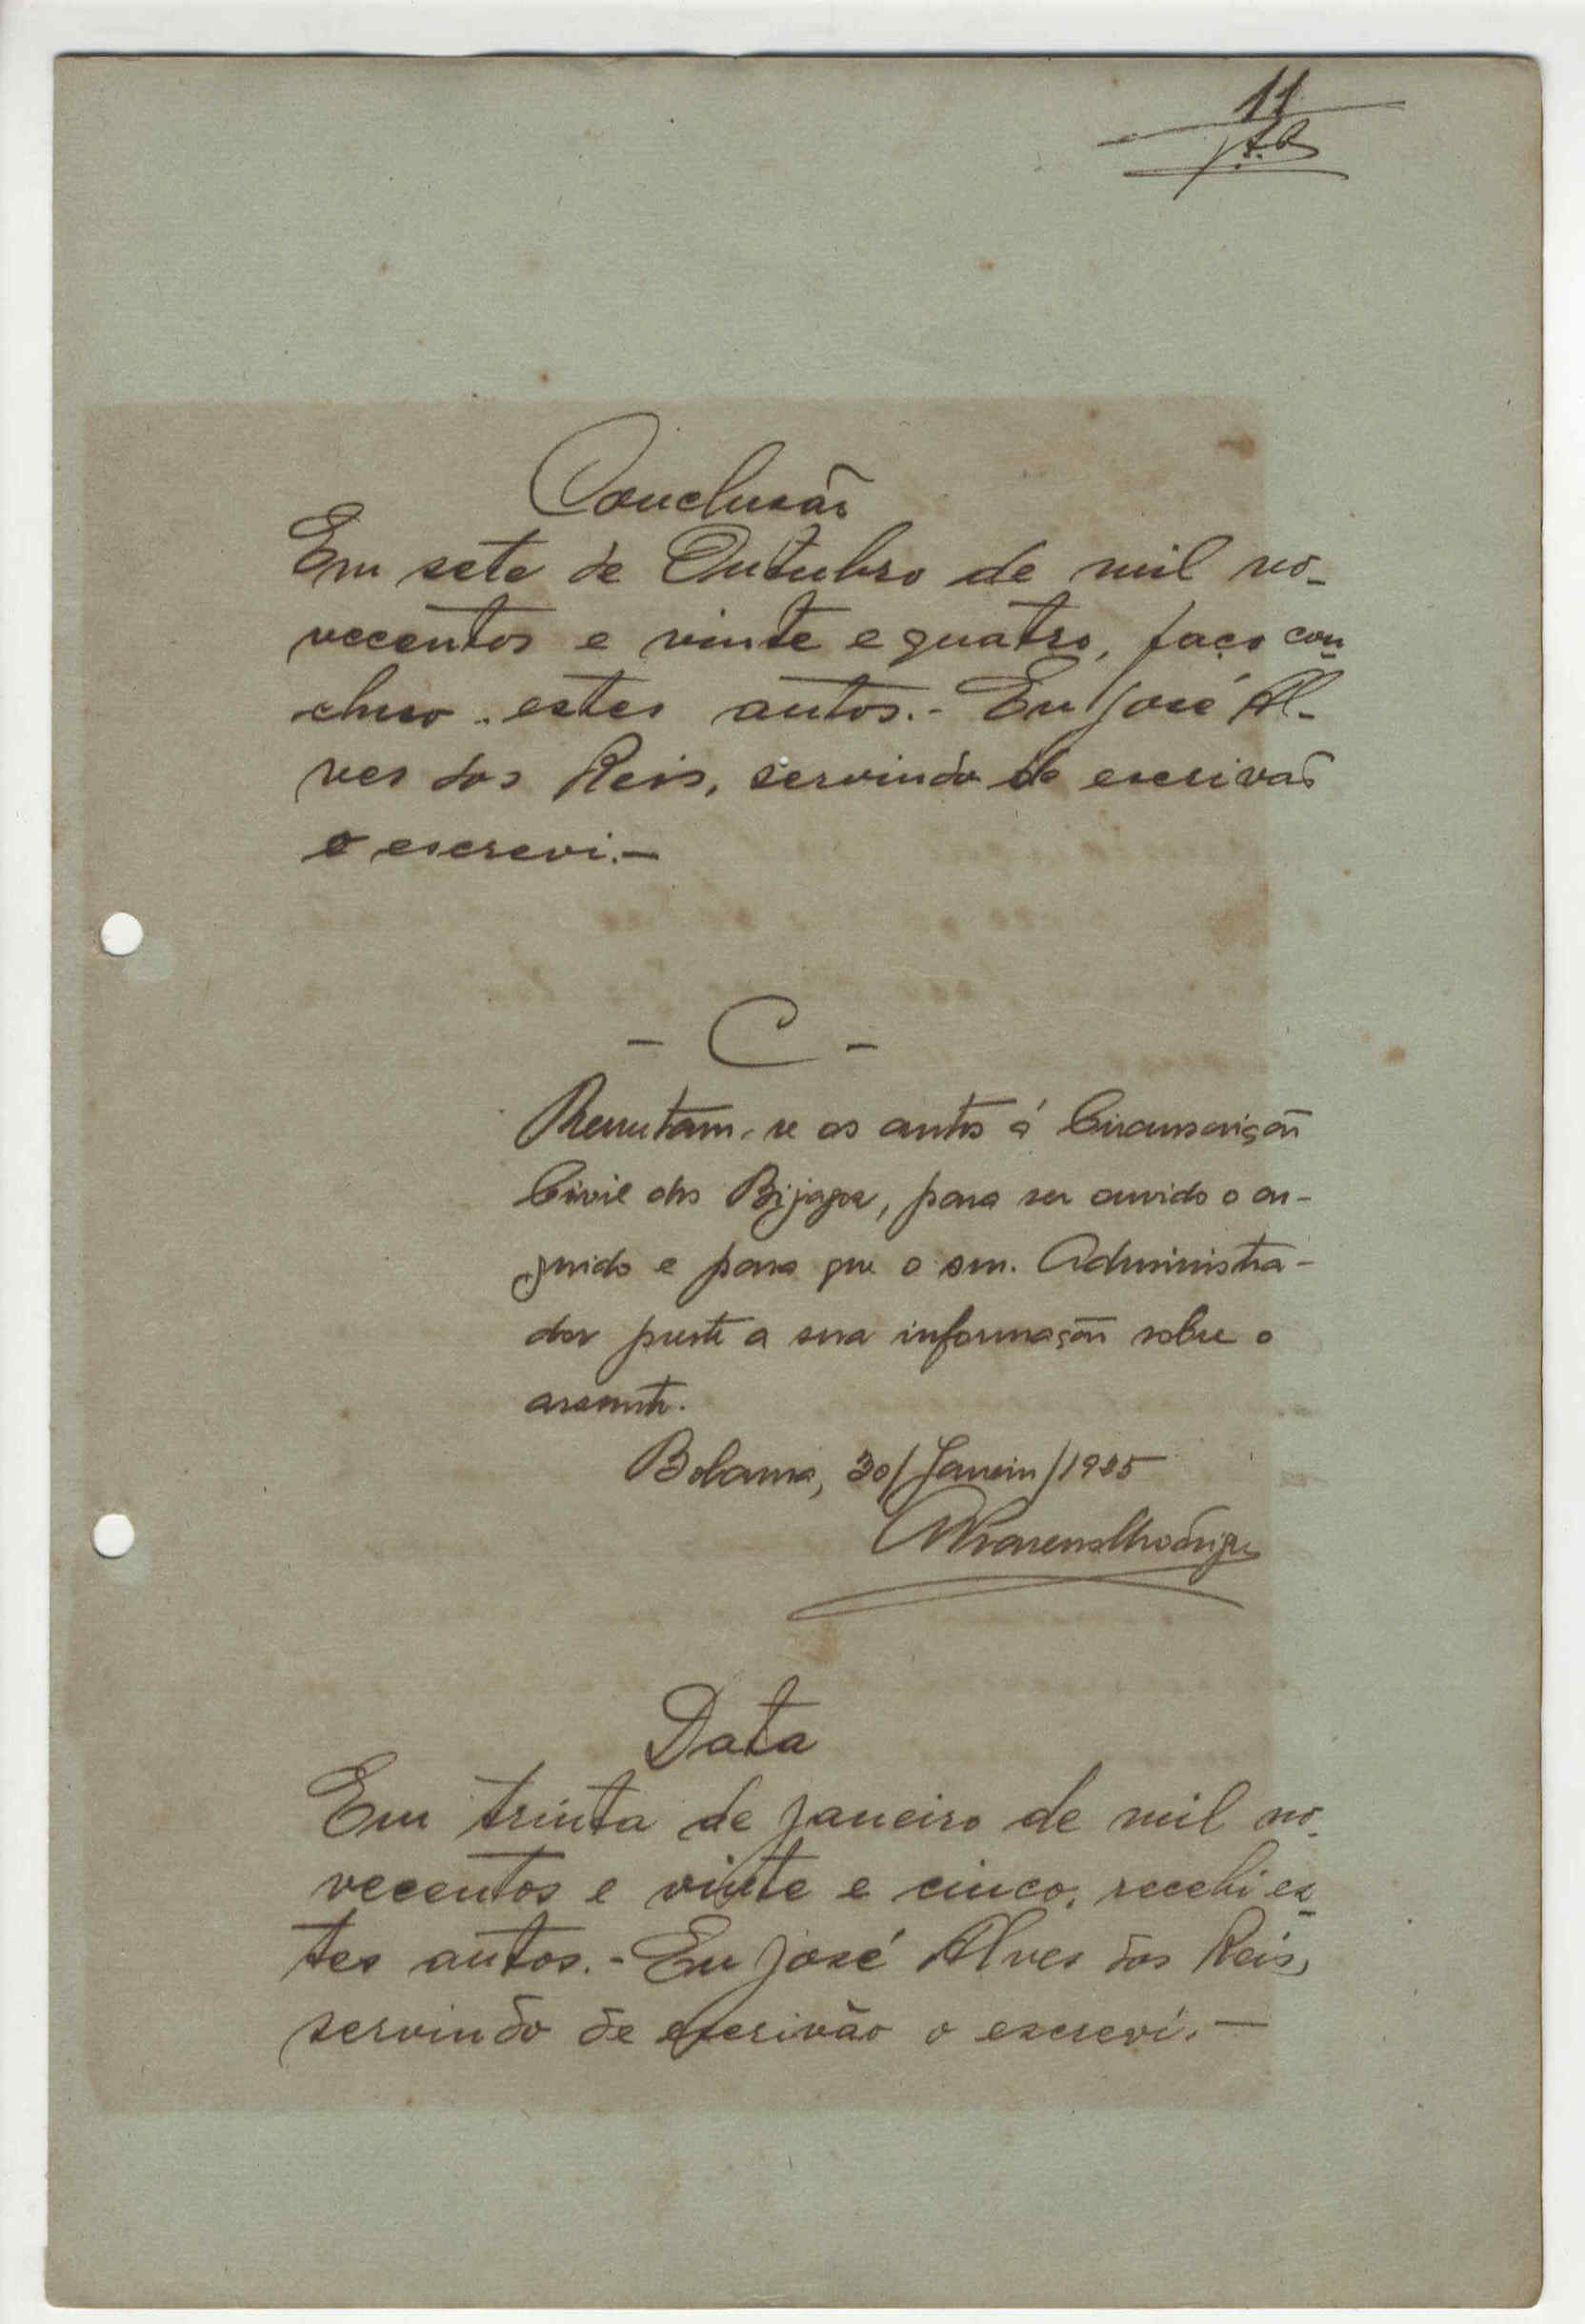 11
Conclusão
Em sete de Outubro de mil no-
vecentos e vinte e quatro, faço con-
cluso estes autos.- Eu José Al-
ves dos Reis, servindo de escrivão
o escrevi.-
- C -
Remetam-se os autos á Circunscrição
Civil dos Bijagoz, para ser ouvido o ar-
guido e para que o snr. Administra-
dor preste a sua informação sobre o
assunto.
Bolama, 30/Janeiro/1925
Data
Em trinta de Janeiro de mil no-
vecentos e vinte e cinco, recebi es-
tes autos.- Eu José Alves dos Reis,
servindo de escrivão o escrevi.-